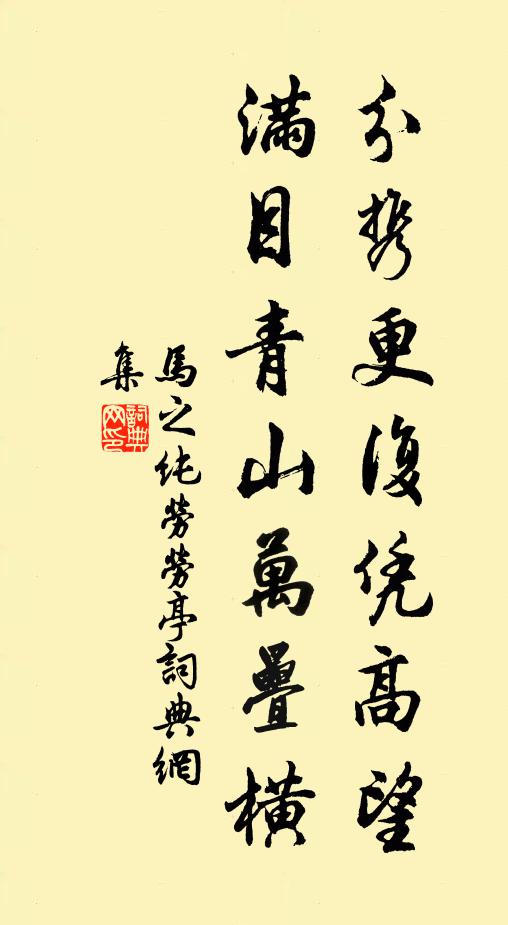 分携更復凭高望
滿目青山萬疊橫
馬之純勞勞亭詞典網
集
詞典
网印